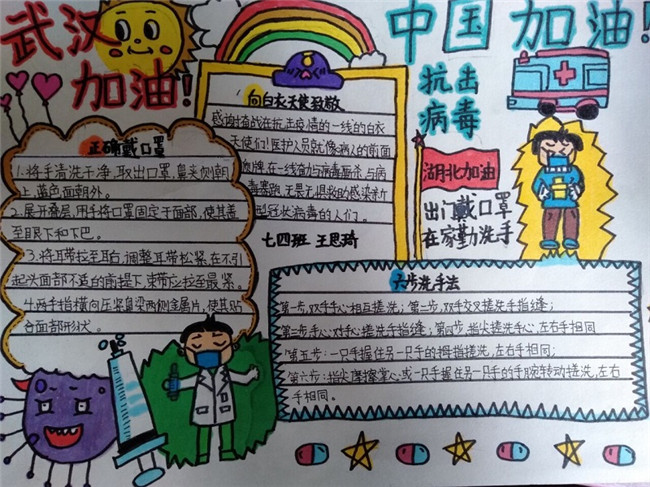 武汉
加油!
中国加油!
抗击
病毒
湖北加油
出门戴口罩
在家勤洗手
向白衣天使致敬
感谢奋战在抗击疫情的一线的白衣
天使们!医护人员就像病人的前面
在一线奋力与病毒厮杀,与病
冠状病毒的人们。
七四班 王思琦
正确戴口罩
1.将手清洗干净,取出口罩,鼻夹侧朝
上,蓝色面朝外。
2.展开叠层,用手将口罩固定于面部,使其盖
至眼下和下巴。
3.将耳带拉至耳右,调整耳带松紧,在不引
起头面部不适的前提下,束带应拉至最紧。
4.两手指横向压紧鼻梁两侧金属片,使其贴
合面部形状。
六步洗手法
第一步,双手手心相互搓洗;第二步,双手交叉搓洗手指缝;
第三步手心对手心搓洗手指缝;第四步,指尖搓洗手心,左右手相同
第五步:一只手握住另一只手的拇指搓洗,左右手相同;
第六步:指尖摩擦掌心,或一只手握住另一只手的手腕转动搓洗,左右
手相同。